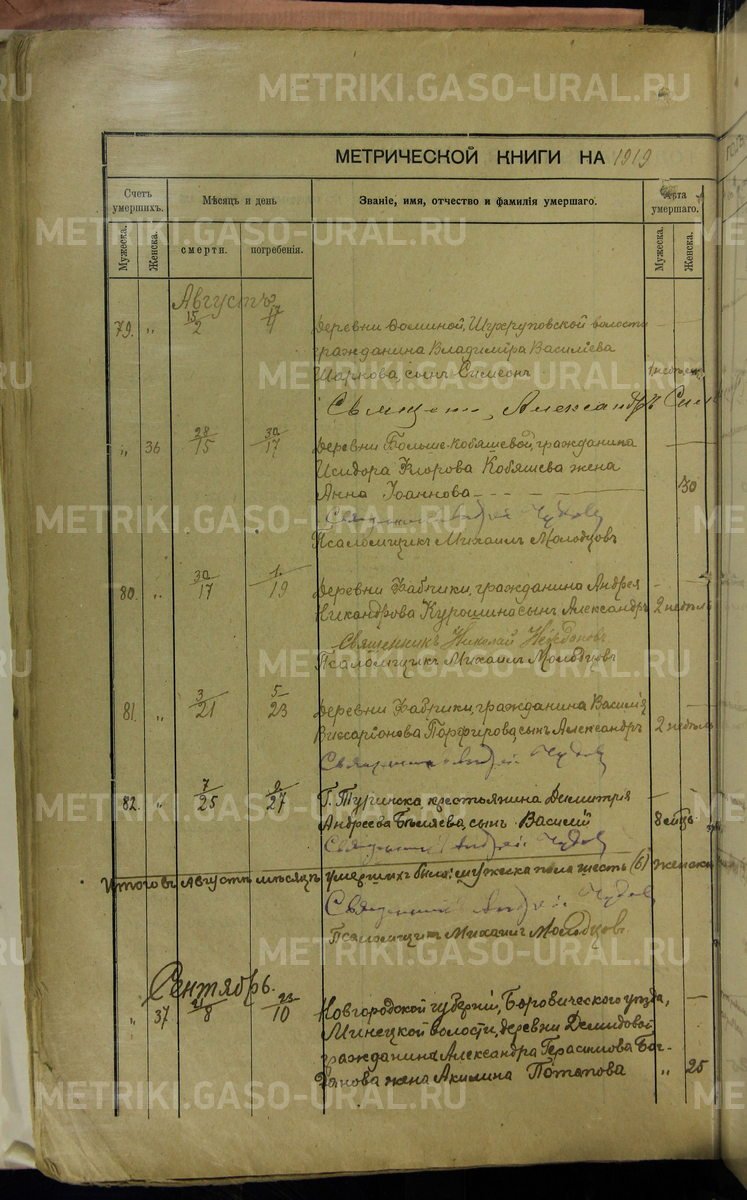 METRIKI.GASO-URAL.RU
МЕТРИЧЕСКОЙ КНИГИ НА 1919
Счетъ умершихъ.
Мѣсяцъ и день
Званіе, имя, отчество и фамилія умершаго.
Лѣта умершаго.
Мужеска.
Женска.
смерти.
погребенія.
Мужеска.
Женска.
Августъ
79. „ 15/2 17/4 Деревни Фоминой, волости
гражданина Владимира Василіева
Шаркова, сынъ Симеонъ
Священ. Александръ
„ 36 28/15 30/17 Деревни Больше-Кобяшевой, гражданина
Исидора Кобяшева жена
Анна Іоаннова 30
Священникъ Андрей Чудов
Псаломщикъ Михаилъ Молодцовъ
80. „ 30/17 1/19 Деревни Фабрики, гражданина Андрея
Никандрова Курошина сынъ Александръ 2 недѣль
Священникъ Николай
Псаломщикъ Михаилъ Молодцовъ
81. „ 3/21 5/23 Деревни Фабрики, гражданина Василія
Виссаріонова Порфирова, сынъ Александръ 2 недѣль
Священникъ Андрей Чудов
82. „ 7/25 9/27 Г. Туринска крестьянина Димитрія
Андреева Бѣляева, сынъ Василій 8
Священникъ Андрей Чудов
Итого въ Августѣ мѣсяцѣ умершихъ было: мужеска пола шесть (6) женска
Священникъ Андрей Чудов
Псаломщикъ Михаилъ Молодцовъ
Сентябрь.
„ 37 21/8 23/10 Новгородской губерніи, Боровическаго уѣзда,
Минецкой волости, деревни Демидовой
гражданина Александра Герасимова Бог-
данова жена Акилина Потапова „ 25